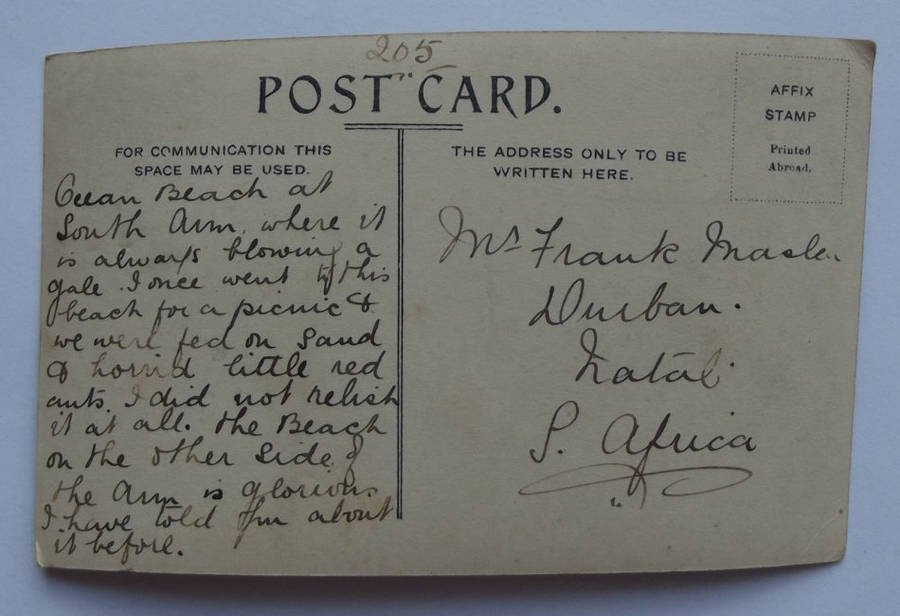 205
POST CARD.
FOR COMMUNICATION THIS
SPACE MAY BE USED.
THE ADDRESS ONLY TO BE
WRITTEN HERE.
AFFIX
STAMP
Printed
Abroad.
Ocean Beach at
South Arm, where it
is always blowing a
gale. I once went to this
beach for a picnic &
we were fed on sand
& horrid little red
ants. I did not relish
it at all. the Beach
on the other side of
the Arm is glorious
I have told you about
it before.
Frank
Durban.
Natal.
S. Africa